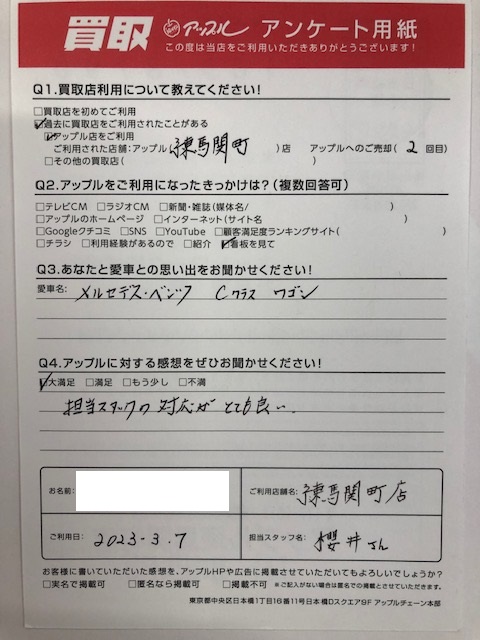 買取 アップル アンケート用紙
この度は当店をご利用いただきありがとうございます!
Q1.買取店利用について教えてください!
□買取店を初めてご利用
☑過去に買取店をご利用されたことがある
☑アップル店をご利用
ご利用された店舗:アップル 練馬関町 )店 アップルへのご売却( 2 回目)
□その他の買取店( )
Q2.アップルをご利用になったきっかけは?(複数回答可)
□テレビCM □ラジオCM □新聞・雑誌(媒体名/ )
□アップルのホームページ □インターネット(サイト名 )
□Googleクチコミ □SNS □YouTube □顧客満足度ランキングサイト( )
□チラシ □利用経験があるので □紹介 ☑看板を見て
Q3.あなたと愛車との思い出をお聞かせください!
愛車名: メルセデス・ベンツ Cクラス ワゴン
Q4.アップルに対する感想をぜひお聞かせください!
☑大満足 □満足 □もう少し □不満
担当スタッフの対応がとても良い.
お名前:
ご利用店舗名: 練馬関町店
ご利用日: 2023-3.7
担当スタッフ名: 櫻井さん
お客様に書いていただいた感想を、アップルHPや広告に掲載させていただいてもよろしいでしょうか?
□実名で掲載可 □匿名なら掲載可 □掲載不可 ※ご記入がない場合は匿名での掲載とさせていただきます。
東京都中央区日本橋1丁目16番11号日本橋Dスクエア9F アップルチェーン本部